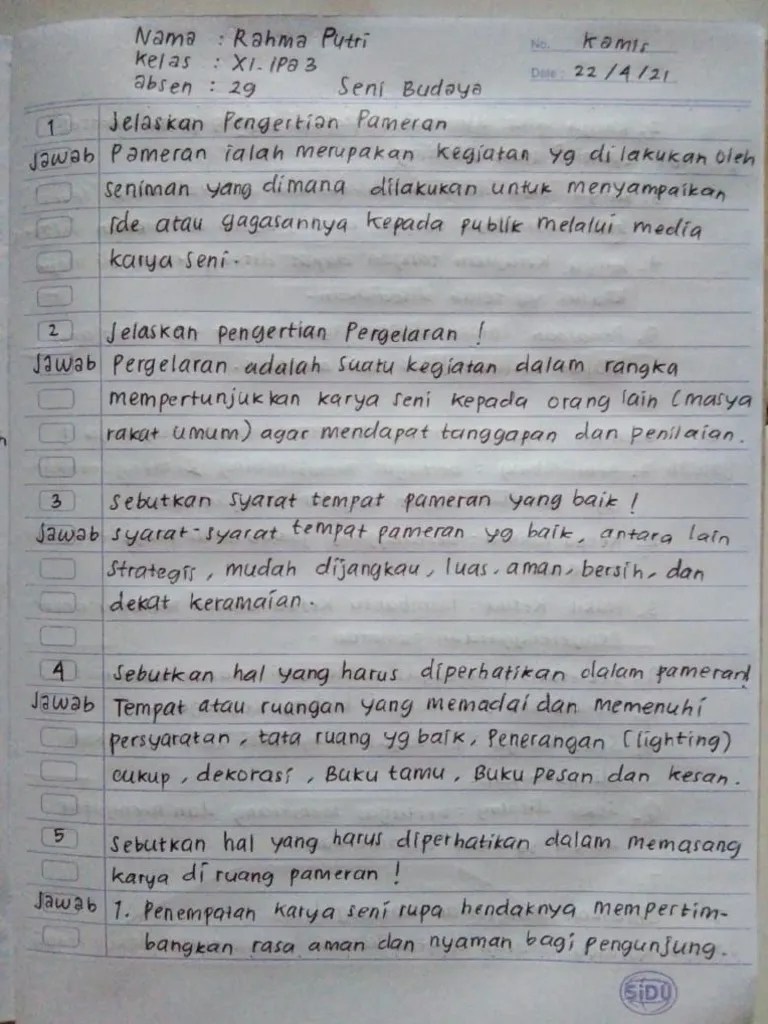 Nama : Rahma Putri
No. Kamis
Kelas : XI. IPA 3
Date : 22 / 4 / 21
absen : 29 Seni Budaya
1 Jelaskan Pengertian Pameran
Jawab Pameran ialah merupakan kegiatan yg dilakukan oleh
seniman yang dimana dilakukan untuk menyampaikan
ide atau gagasannya kepada publik melalui media
karya seni.
2 Jelaskan pengertian Pergelaran !
Jawab Pergelaran adalah suatu kegiatan dalam rangka
mempertunjukkan karya seni kepada orang lain (masya
rakat umum) agar mendapat tanggapan dan penilaian.
3 Sebutkan syarat tempat pameran yang baik !
Jawab syarat-syarat tempat pameran yg baik, antara lain
Strategis, mudah dijangkau, luas, aman, bersih, dan
dekat keramaian.
4 Sebutkan hal yang harus diperhatikan dalam pameran!
Jawab Tempat atau ruangan yang memadai dan memenuhi
persyaratan, tata ruang yg baik, Penerangan (lighting)
cukup, dekorasi, Buku tamu, Buku pesan dan kesan.
5 Sebutkan hal yang harus diperhatikan dalam memasang
karya di ruang pameran !
Jawab 1. Penempatan karya seni rupa hendaknya mempertim-
bangkan rasa aman dan nyaman bagi pengunjung.
SiDU